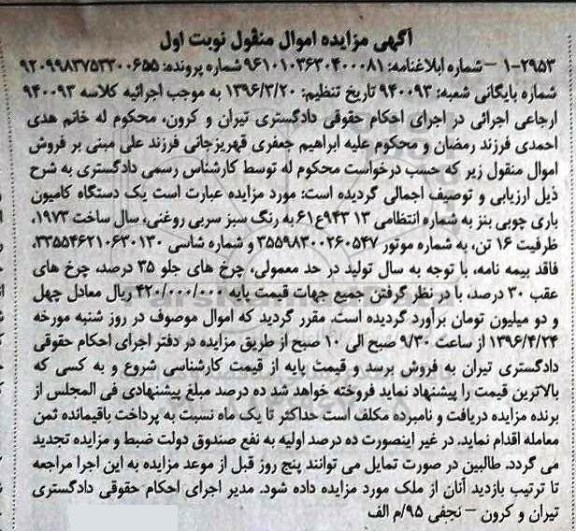 آگهی مزایده اموال منقول نوبت اول
۱-۲۹۵۳ - شماره ابلاغنامه: ۹۶۱۰۱۰۳۶۳۰۴۰۰۰۸۱ شماره پرونده: ۹۲۰۹۹۸۳۷۵۳۳۰۰۶۵۵
شماره بایگانی شعبه: ۹۴۰۰۹۳ تاریخ تنظیم: ۱۳۹۶/۳/۲۰ به موجب اجرائیه کلاسه ۹۴۰۰۹۳
ارجاعی اجرائی در اجرای احکام حقوقی دادگستری تیران و کرون، محکوم له خانم هدی
احمدی فرزند رمضان و محکوم علیه ابراهیم جعفری قهریزجانی فرزند علی مبنی بر فروش
اموال منقول زیر که حسب درخواست محکوم له توسط کارشناس رسمی دادگستری به شرح
ذیل ارزیابی و توصیف اجمالی گردیده است: مورد مزایده عبارت است یک دستگاه کامیون
باری چوبی بنز به شماره انتظامی ۱۳ ۹۴۳ع۶۱ به رنگ سبز سربی روغنی، سال ساخت ۱۹۷۳،
ظرفیت ۱۶ تن، به شماره موتور ۳۵۵۹۸۳۰۰۲۶۰۵۴۷ و شماره شاسی ۳۳۵۵۴۶۲۱۰۶۳۰۱۳۰،
فاقد بیمه نامه، با توجه به سال تولید در حد معمولی، چرخ های جلو ۳۵ درصد، چرخ های
عقب ۳۰ درصد، با در نظر گرفتن جمیع جهات قیمت پایه ۴۲۰/۰۰۰/۰۰۰ ریال معادل چهل
و دو میلیون تومان برآورد گردیده است. مقرر گردید که اموال موصوف در روز شنبه مورخه
۱۳۹۶/۴/۲۴ از ساعت ۹/۳۰ صبح الی ۱۰ صبح از طریق مزایده در دفتر اجرای احکام حقوقی
دادگستری تیران به فروش برسد و قیمت پایه از قیمت کارشناسی شروع و به کسی که
بالاترین قیمت را پیشنهاد نماید فروخته خواهد شد ده درصد مبلغ پیشنهادی فی المجلس از
برنده مزایده دریافت و نامبرده مکلف است حداکثر تا یک ماه نسبت به پرداخت باقیمانده ثمن
معامله اقدام نماید. در غیر اینصورت ده درصد اولیه به نفع صندوق دولت ضبط و مزایده تجدید
می گردد. طالبین در صورت تمایل می توانند پنج روز قبل از موعد مزایده به این اجرا مراجعه
تا ترتیب بازدید آنان از ملک مورد مزایده داده شود. مدیر اجرای احکام حقوقی دادگستری
تیران و کرون - نجفی ۹۵/م الف